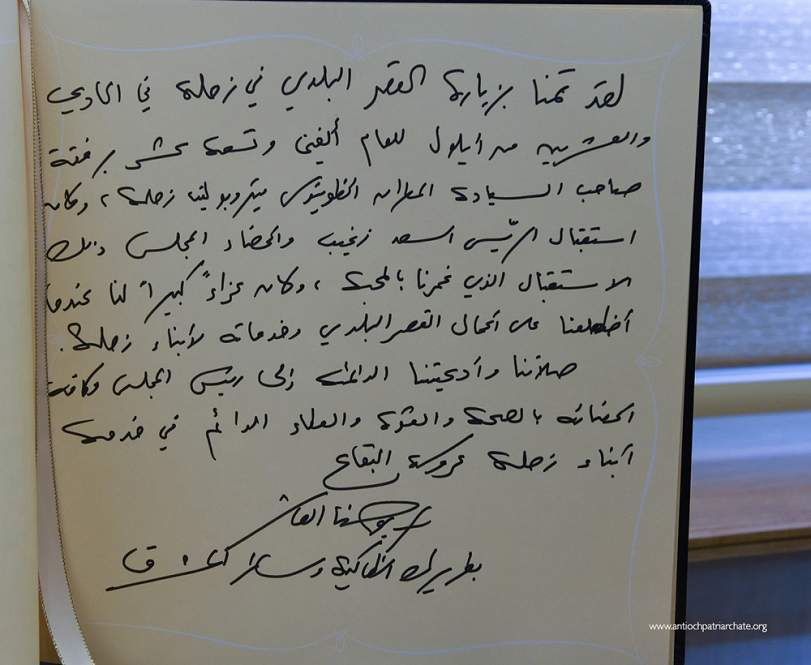 لقد قمنا بزيارة القصر البلدي في زحلة في الحادي
والعشرين من أيلول للعام ألفين وتسعة عشر برفقة
صاحب السيادة المطران انطونيوس ميتروبوليت زحلة، وكان
استقبال الرّئيس اسعد زغيب واعضاء المجلس ذلك
الاستقبال الذي غمرنا بالمحبة، وكان عزاءً كبيراً لنا عندما
أطلعنا على أعمال القصر البلدي وخدماته لأبناء زحلة.
صلاتنا وأدعيتنا الدائمة إلى رئيس المجلس وكافة
اعضائه بالصحة والقوة والعطاء الدائم في خدمة
أبناء زحلة عروسة البقاع
يوحنا العاشر
بطريرك انطاكية وسائر المشرق
www.antiochpatriarchate.org